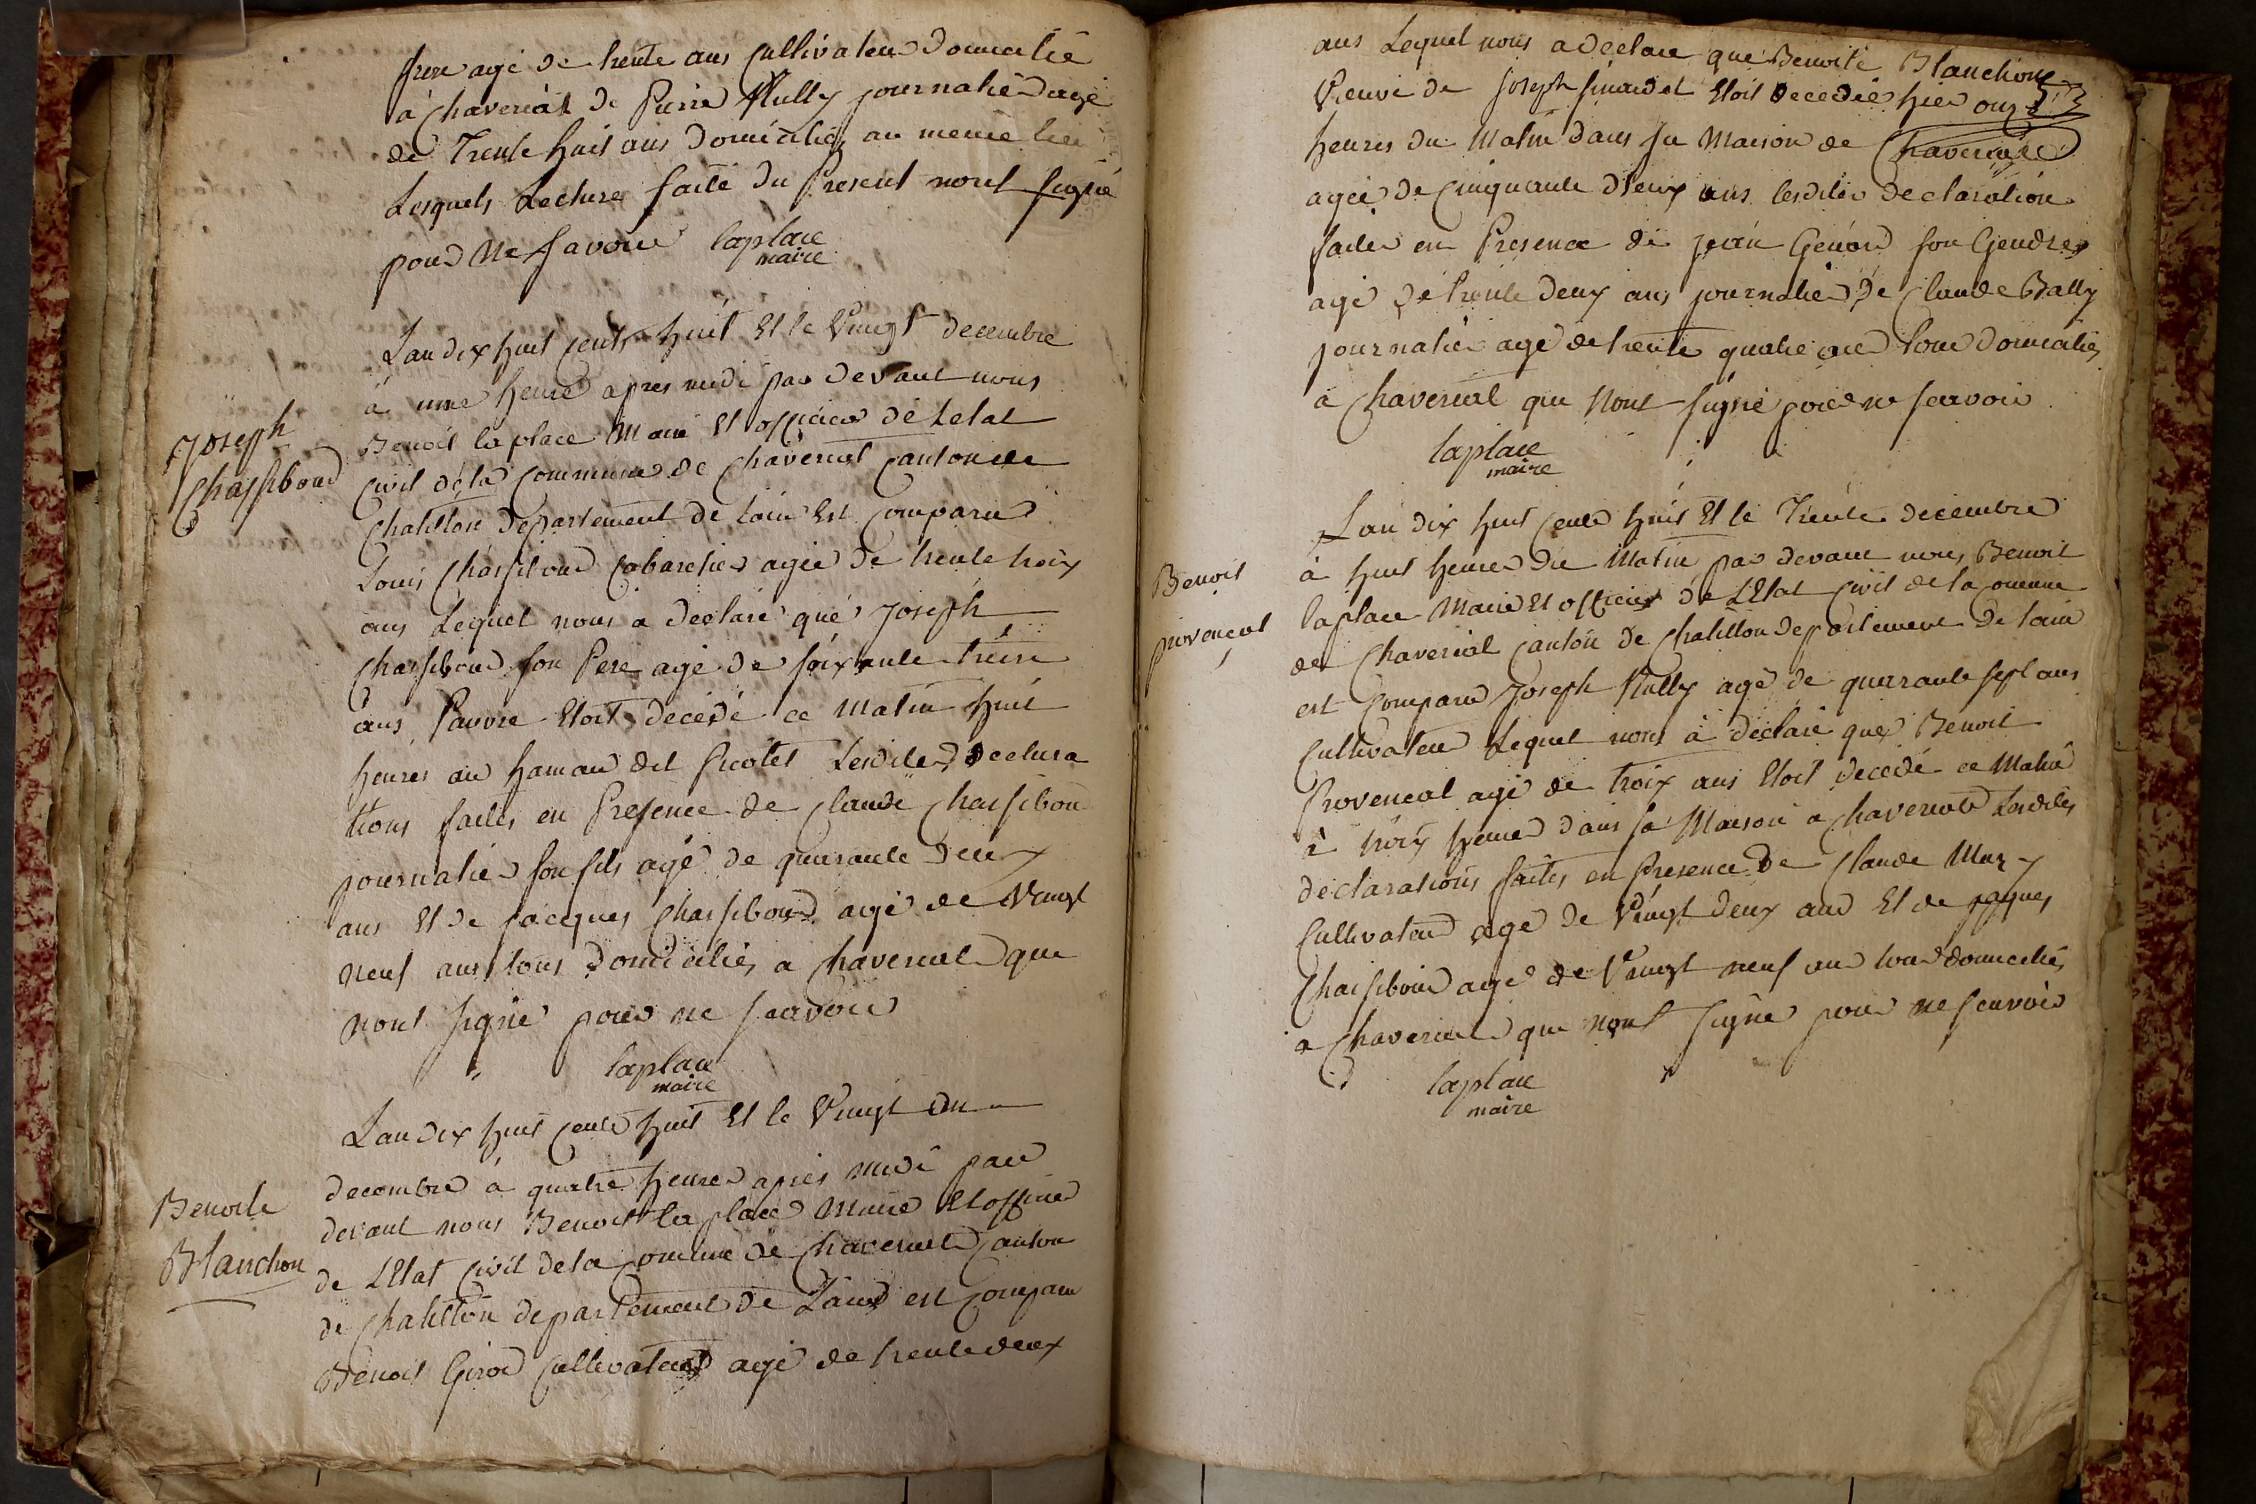 frere agé de trente ans Cultivateur domicilié
à Chaveriat de Pierre Vully journalier agé
de Trente huit ans domiciliés au meme lieu
Lesquels Lecture faite du Present nont signé
pour ne savoir laplace
maire
Lan dix huit cents huit Et le Vingt decembre
à une heure apres midi par devant nous
Benoit laplace Maire Et officier de Letat
Civil de la Commune de Chaveriat Canton de
Chatillon departement de lain Est Comparu
Joseph
Chassibout
Louis Chassiboud Cabaretier agée de trente troix
ans Lequel nous a declaré que Joseph
Chassiboud son Pere agé de soixante treize
ans Pauvre Etoit decédé ce Matin huit
heures au hamau det Picotet Lesdites declara
tions faites en Presence de Claude Chassiboud
journalier son fils agé de quarante deux
ans Et de Jacques Chassiboud agé de Vingt
neuf ans tous domiciliés a Chaveriat que
nont signé pour ne scavoir
laplace
maire
Lan dix huit cents huit Et le Vingt un
decembre à quatre heures apres midi par
devant nous Benoit la place Maire Et officier
de LEtat Civil de la Comune de Chaveriat Canton
de Chatillon departement de Lain est Comparu
Benoit Girod Cultivateur agé de trente deux
Benoite
Blanchon
ans Lequel nous a declaré que Benoite Blanchon
Veuve de Joseph Etoit decedée hier onze
heures du Matin dans sa Maison de Chaveriat
agée de Cinquante deux ans lesdites declaration
faites en Presence de jean son Gendre
agé de trente deux ans journalier de Claude Bally
journalier agé de trente quatre ans tous domiciliés
a Chaveriat que Nont signé pour ne scavoir
laplace
maire
Lan dix huit cents huit Et le Trente decembre
à huit heures du Matin par devant nous Benoit
laplace Maire Et officier de LEtat Civil de la Comune
de Chaveriat Canton de Chatillon departement de lain
Benoit
provencal
est Comparu Joseph Vully agé de quarante sept ans
Cultivateur Lequel nous à déclaré que Benoit
Provencal agé de troix ans Etoit decédé ce Matin
à troix heures dans sa Maison a Chaveriat Lesdites
declarations faites en Presence de Claude
Cultivateur agé de Vingt deux ans Et de jaques
Chassiboud agé de Vingt neuf ans tous domiciliés
a Chaveriat que nont signé pour ne scavoir
laplace
maire